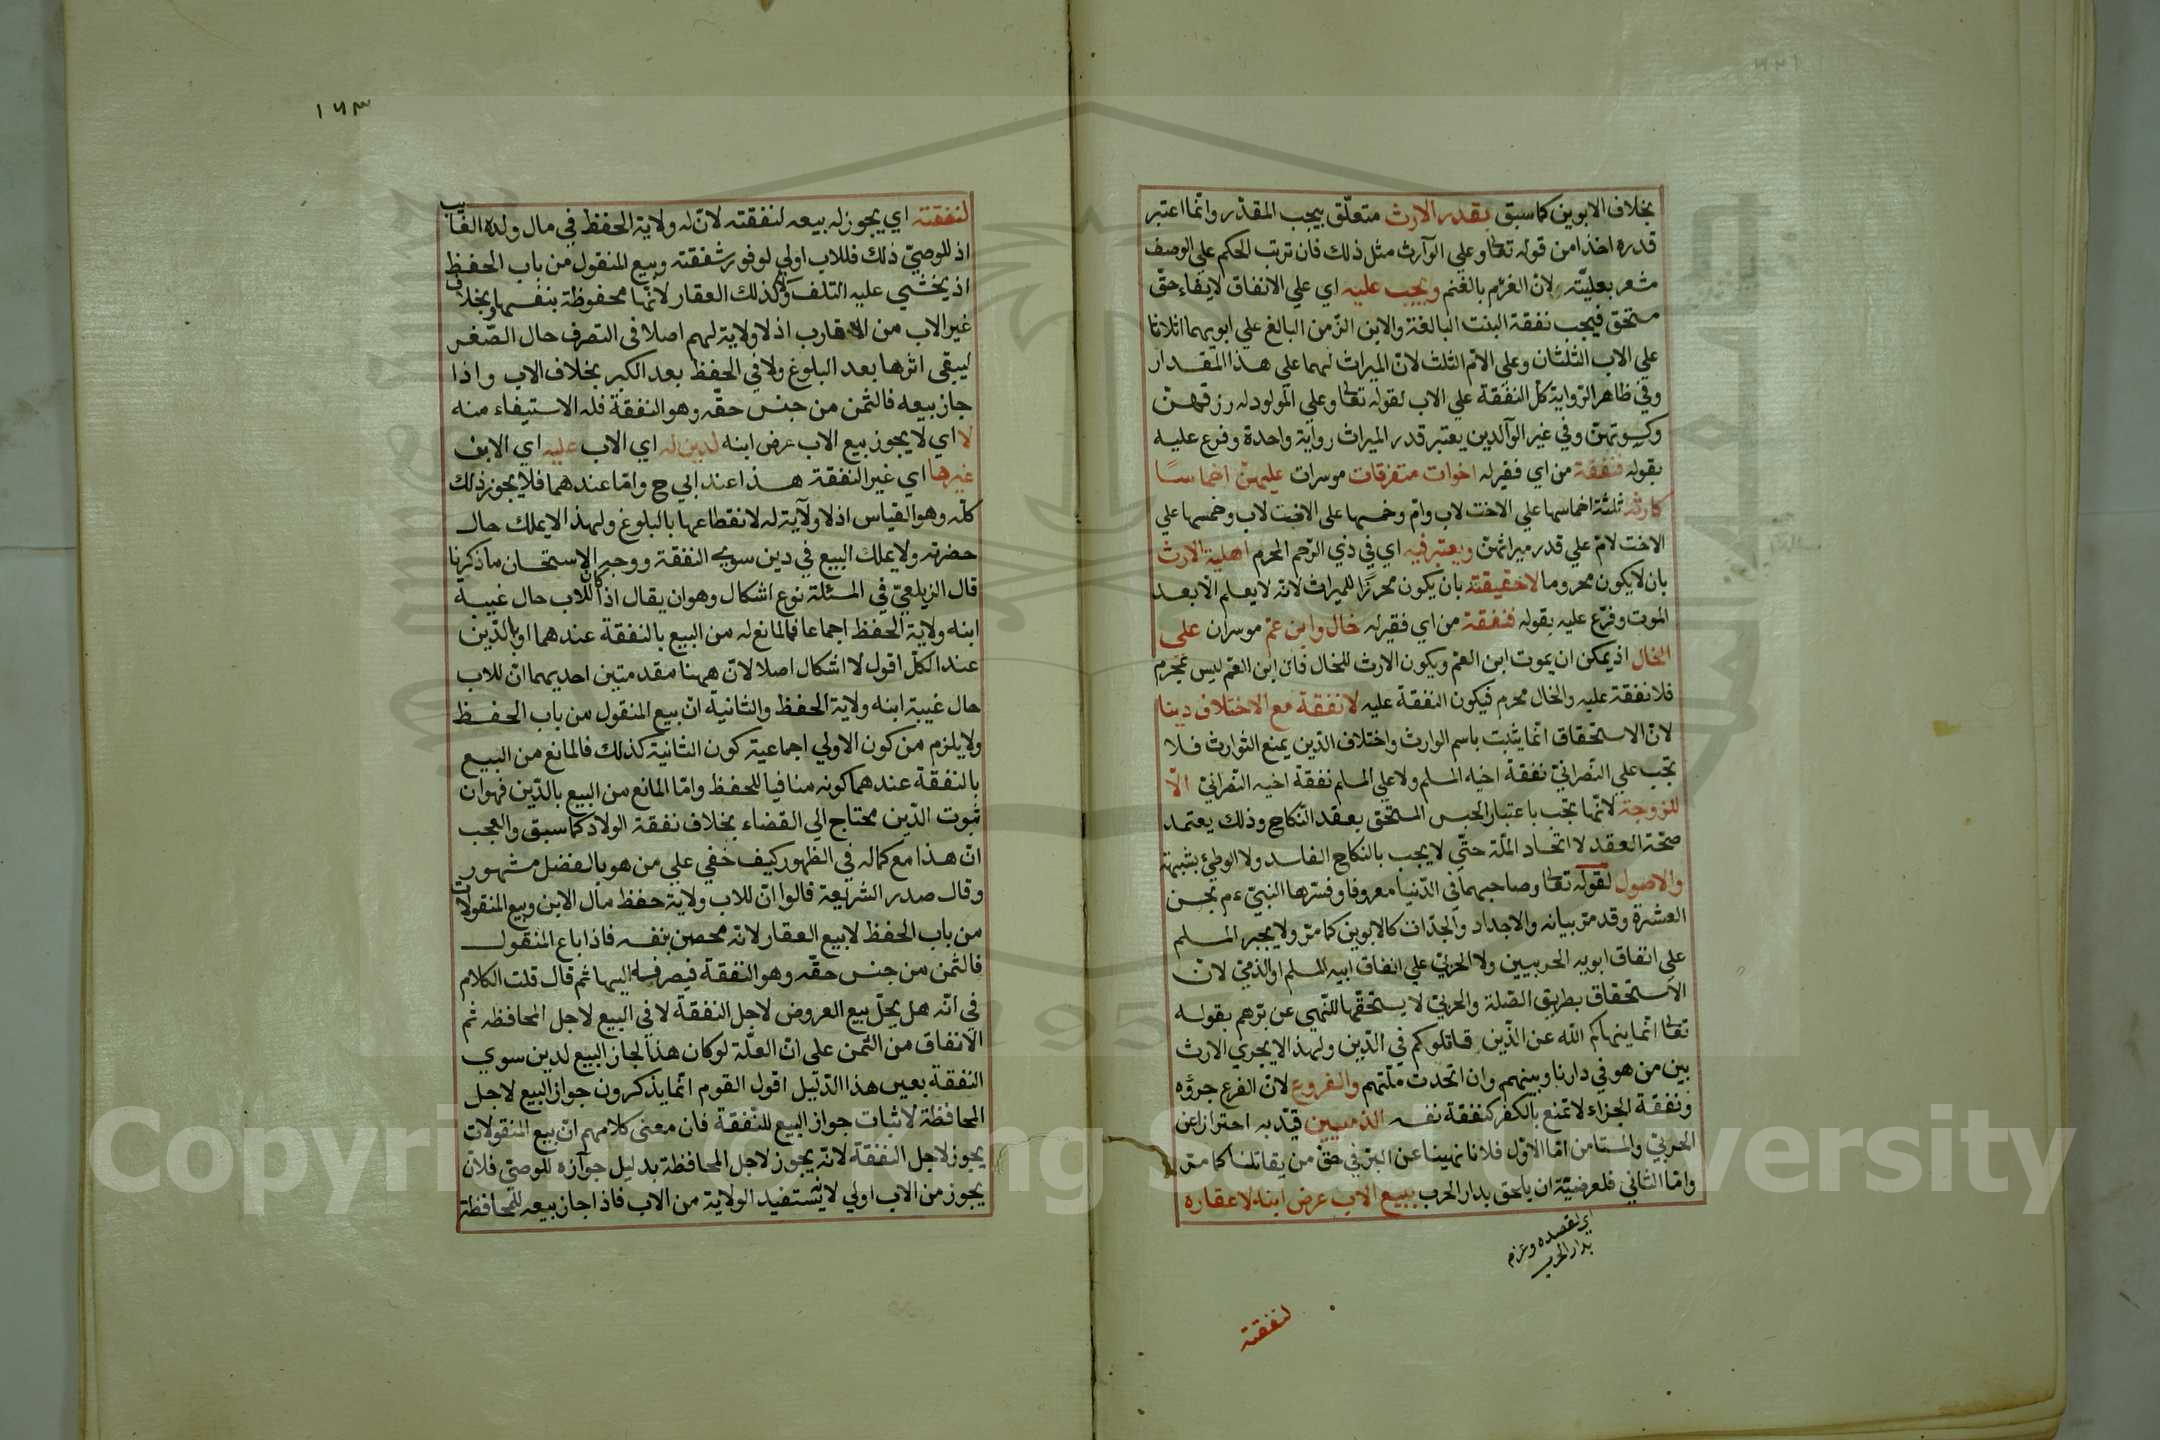 بخلاف الابوين كما سبق بقدر الارث متعلّق بيجب المقدّر وانّما اعتبر
قدره اخذا من قوله تعا وعلي الوارث مثل ذلك فان ترتب الحكم علي الوصف
مشعر بعليّته ولان الغرم بالغنم ويجب عليه اي علي الانفاق لايفاء حقّ
مستحق فيجب نفقة البنت البالغة والابن الزّمن البالغ علي ابويهما اثلاثا
علي الاب الثلثان وعلي الامّ الثلث لانّ الميراث لهما علي هذا المقدار
وفي ظاهر الرّواية كلّ النفقة علي الاب لقوله تعا وعلي المولود له رزقهنّ
وكسوتهنّ وفي غير الوالدين يعتبر قدر الميراث رواية واحدة وفرع عليه
بقوله فنفقة من اي فقير له اخوات متفرقات موسرات عليهنّ اخماسًا
كارثه ثلثة اخماسها علي الاخت لاب وامّ وخمسها علي الاخت لاب وخمسها علي
الاخت لامّ علي قدر ميراثهنّ ويعتبر فيه اي في ذي الرّحم المحرم اهلية الارث
بان لا يكون محروما لا حقيقته بان يكون محرزًا للميراث لانه لا يعلم الّا بعد
الموت وفرّع عليه بقوله فنفقة من اي فقير له خال وابن عمّ موسران علي
الخال اذ يمكن ان يموت ابن العمّ ويكون الارث للخال فان ابن العمّ ليس بمحرم
فلا نفقة عليه والخال محرم فيكون النفقة عليه لا نفقة مع الاختلاف دينا
لانّ الاستحقاق انّما يثبت باسم الوارث واختلاف الدّين يمنع التوارث فلا
تجب علي النّصرانيّ نفقة اخيه المسلم ولا علي المسلم نفقة اخيه النّصرانيّ الّا
للزوجة لانّها تجب باعتبار الحبس المستحق بعقد النّكاح وذلك يعتمد
صحّة العقد لا اتّحاد الملّة حتّي لا يجب بالنكاح الفاسد ولا الوطئ بشبهة
والاصول لقوله تعا وصاحبهما في الدّنيا معروفا وفسّرها النبيّ ءم بحسن
العشرة وقد مرّ بيانه والاجداد والجدّات كالابوين كما مرّ ولا يجبر المسلم
علي انفاق ابويه الحربيين ولا الحربيّ علي انفاق ابيه المسلم او الذّميّ لانّ
الاستحقاق بطريق الصّلة والحربيّ لا يستحقّها للنّهي عن برّهم بقوله
تعا انّما ينهاكم الله عن الّذين قاتلوكم في الدّين ولهذا لا يجري الارث
بين من هو في دارنا وبينهم وان اتّحدت ملّتهم والفروع لانّ الفرع جزؤه
ونفقة الجزاء لا تمنع بالكفر كنفقة نفسه الذميين قيّد به احترازا عن
الحربيّ والمستامن امّا الاوّل فلانا نهينا عن البرّ في حقّ من يقاتلنا كما مرّ
وامّا الثاني فلعرضيّة ان يلحق بدار الحرب يبيع الاب عرض ابنه لا عقاره
اي لقصده وعزم
بدار الحرب
لنفقته
١٦٣
لنفقته اي يجوز له بيعه لنفقته لانّ له ولاية الحفظ في مال ولده الغايب
اذ للوصيّ ذلك فللاب اولي لوفور شفقته وبيع المنقول من باب الحفظ
اذ يخشي عليه التلف ولا كذلك العقار لانّها محفوظة بنفسها وبخلاف
غير الاب من الاقارب اذ لا ولاية لهم اصلا في التصرف حال الصّغر
ليبقي اثرها بعد البلوغ ولا في الحفظ بعد الكبر بخلاف الاب واذا
جاز بيعه فالثمن من جنس حقّه وهو النفقة فله الاستيفاء منه
لا اي لا يجوز بيع الاب عرض ابنه لدين له اي الاب عليه اي الابن
غيرها اي غير النفقة هذا عند ابي ح وامّا عندهما فلا يجوز ذلك
كلّه وهو القياس اذ لا ولاية له لانقطاعها بالبلوغ ولهذا لا يملك حال
حضرته ولا يملك البيع في دين سوي النفقة ووجه الاستحسان ما ذكرنا
قال الزيلعيّ في المسئلة نوع اشكال وهو ان يقال اذا كان للاب حال غيبة
ابنه ولاية الحفظ اجماعا فما المانع له من البيع بالنفقة عندهما او بالدّين
عند الكلّ اقول لا اشكال اصلا لانّ ههنا مقدمتين احديهما انّ للاب
حال غيبة ابنه ولاية الحفظ والثانية انّ بيع المنقول من باب الحفظ
ولا يلزم من كون الاولي اجماعية كون الثانية كذلك فالمانع من البيع
بالنفقة عندهما كونه منافيا للحفظ وامّا المانع من البيع بالدّين فهو ان
ثبوت الدّين محتاج الي القضاء بخلاف نفقة الولاد كما سبق والعجب
انّ هذا مع كماله في الظهور كيف خفي علي من هو بالفضل مشهور
وقال صدر الشريعة قالوا انّ للاب ولاية حفظ مال الابن وبيع المنقولات
من باب الحفظ لا بيع العقار لانّه محصن بنفسه فاذا باع المنقول
فالثمن من جنس حقّه وهو النفقة فيصرفه اليها ثم قال قلت الكلام
في انّه هل يحلّ بيع العروض لاجل النفقة لا في البيع لاجل المحافظة ثم
الانفاق من الثّمن علي انّ العلّة لو كان هذا لجاز البيع لدين سوي
النفقة بعين هذا الدّليل اقول القوم انّما يذكرون جواز البيع لاجل
المحافظة لاثبات جواز البيع للنّفقة فان معني كلامهم انّ بيع المنقولات
يجوز لاجل النفقة لانّه يجوز لاجل المحافظة بدليل جوازه للوصيّ فلان
يجوز من الاب اولي لانّه يستفيد الولاية من الاب فاذا جاز بيعه للمحافظة
Copyright © King Saud University